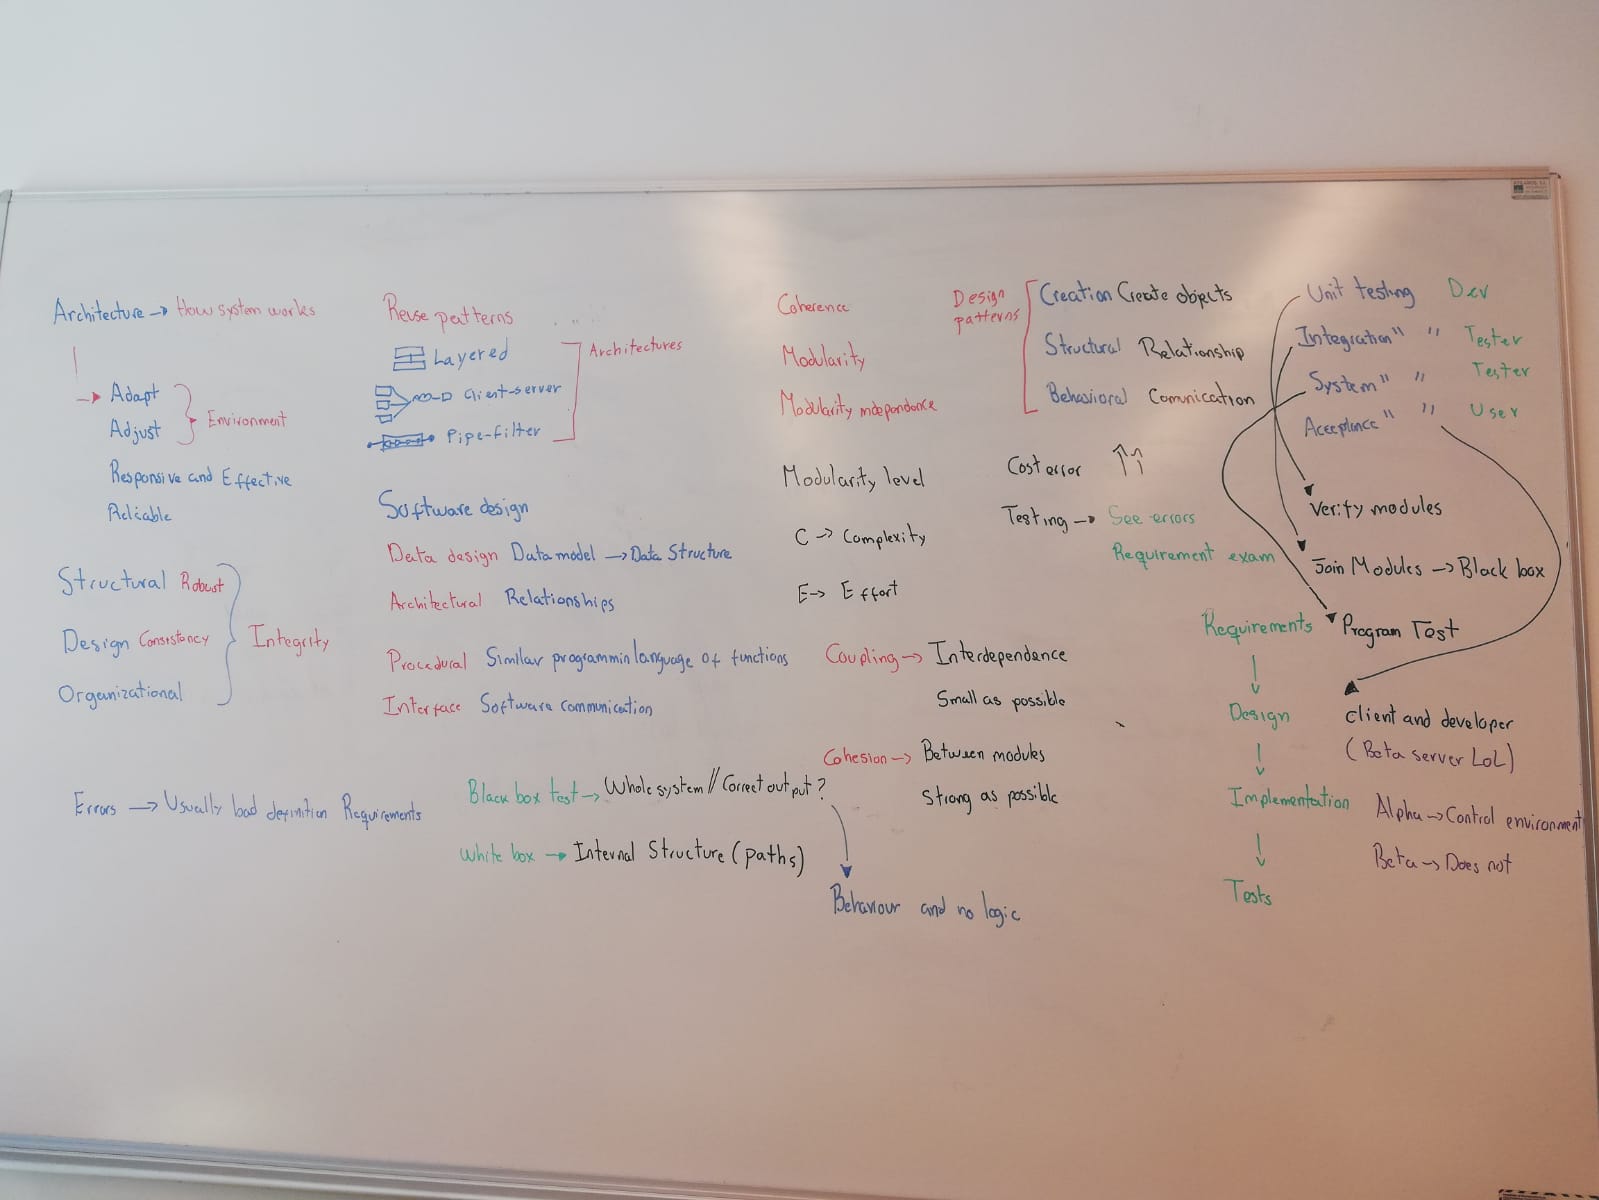 Architecture → How system works
→ Adapt
Adjust
Environment
Responsive and Effective
Reliable
Structural Robust
Design Consistency
Organizational
Integrity
Errors → Usually bad definition Requirements
Reuse patterns
Layered
Client-server
Pipe-filter
Architectures
Software design
Data design Data model → Data Structure
Architectural Relationships
Procedural Similar programmin language of functions
Interface Software communication
Black box test → Whole system // Correct output?
White box → Internal Structure (paths)
Behaviour and no logic
Coherence
Modularity
Modularity independence
Modularity level
C → Complexity
E → Effort
Coupling → Interdependence
Small as possible
Cohesion → Between modules
Strong as possible
Design
patterns
Creation Create objects
Structural Relationship
Behavioral Comunication
Cost error ↑↑
Testing → See errors
Requirement exam
Requirements
↓
Design
↓
Implementation
↓
Tests
Unit testing Dev
Integration " " Tester
System " " Tester
Acceptance " " User
Verify modules
Join Modules → Black box
Program Test
Client and developer
(Beta server LoL)
Alpha → Control environment
Beta → Does not